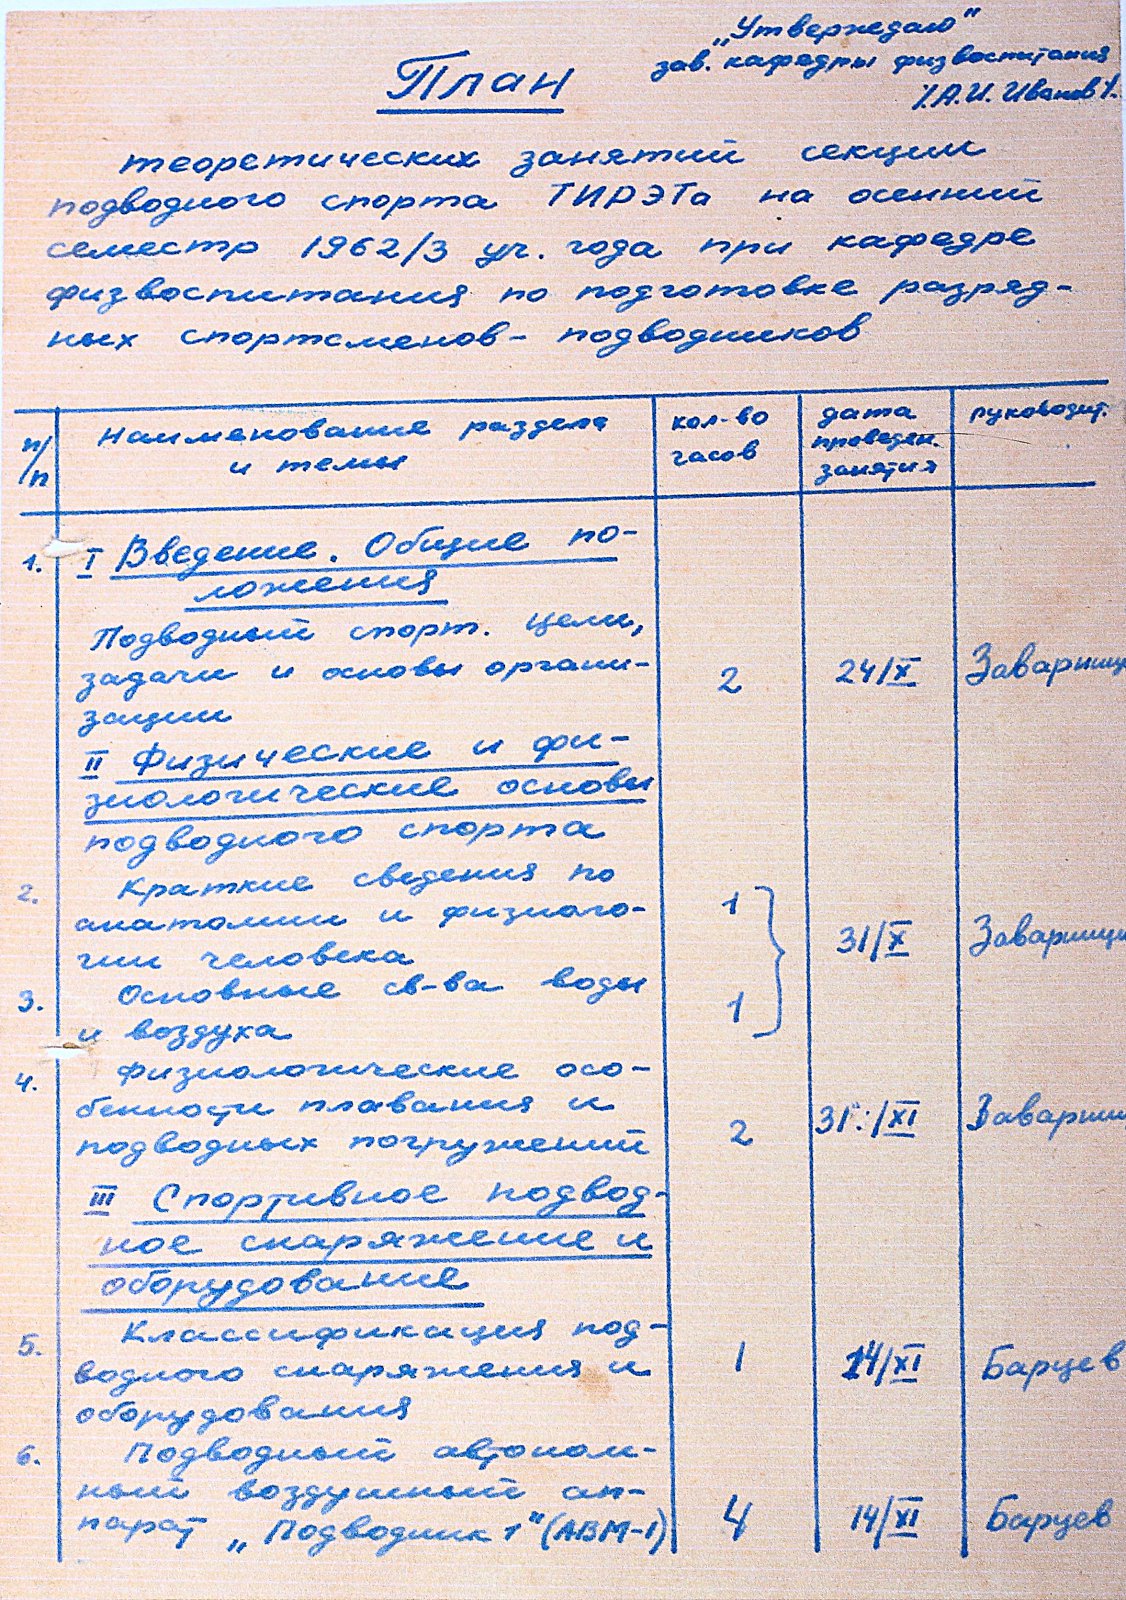 „Утверждаю"
зав. кафедры физвоспитания
/А.И. Иванов/.
План
теоретических занятий секции
подводного спорта ТИРЭТа на осенний
семестр 1962/3 уч. года при кафедре
физвоспитания по подготовке разряд-
ных спортсменов-подводников
п/п Наименование раздела и темы кол-во часов дата проведен. занятия руководит.
1. I Введение. Общие по-
ложения
Подводный спорт. Цели,
задачи и основы органи- 2 24/X Заварзин
зации
II Физические и фи-
зиологические основы
подводного спорта
2. Краткие сведения по 1
анатомии и физиоло- 31/X
гии человека
3. Основные св-ва воды 1
и воздуха
4. Физиологические осо-
бенности плавания и 2 31/XI
подводных погружений
III Спортивное подвод-
ное снаряжение и
оборудование
5. Классификация под- 1 14/XI Барцев
водного снаряжения и
оборудования
6. Подводный автоном-
ный воздушный ап- 4 14/XI Барцев
парат „Подводник 1" (АВМ-1)